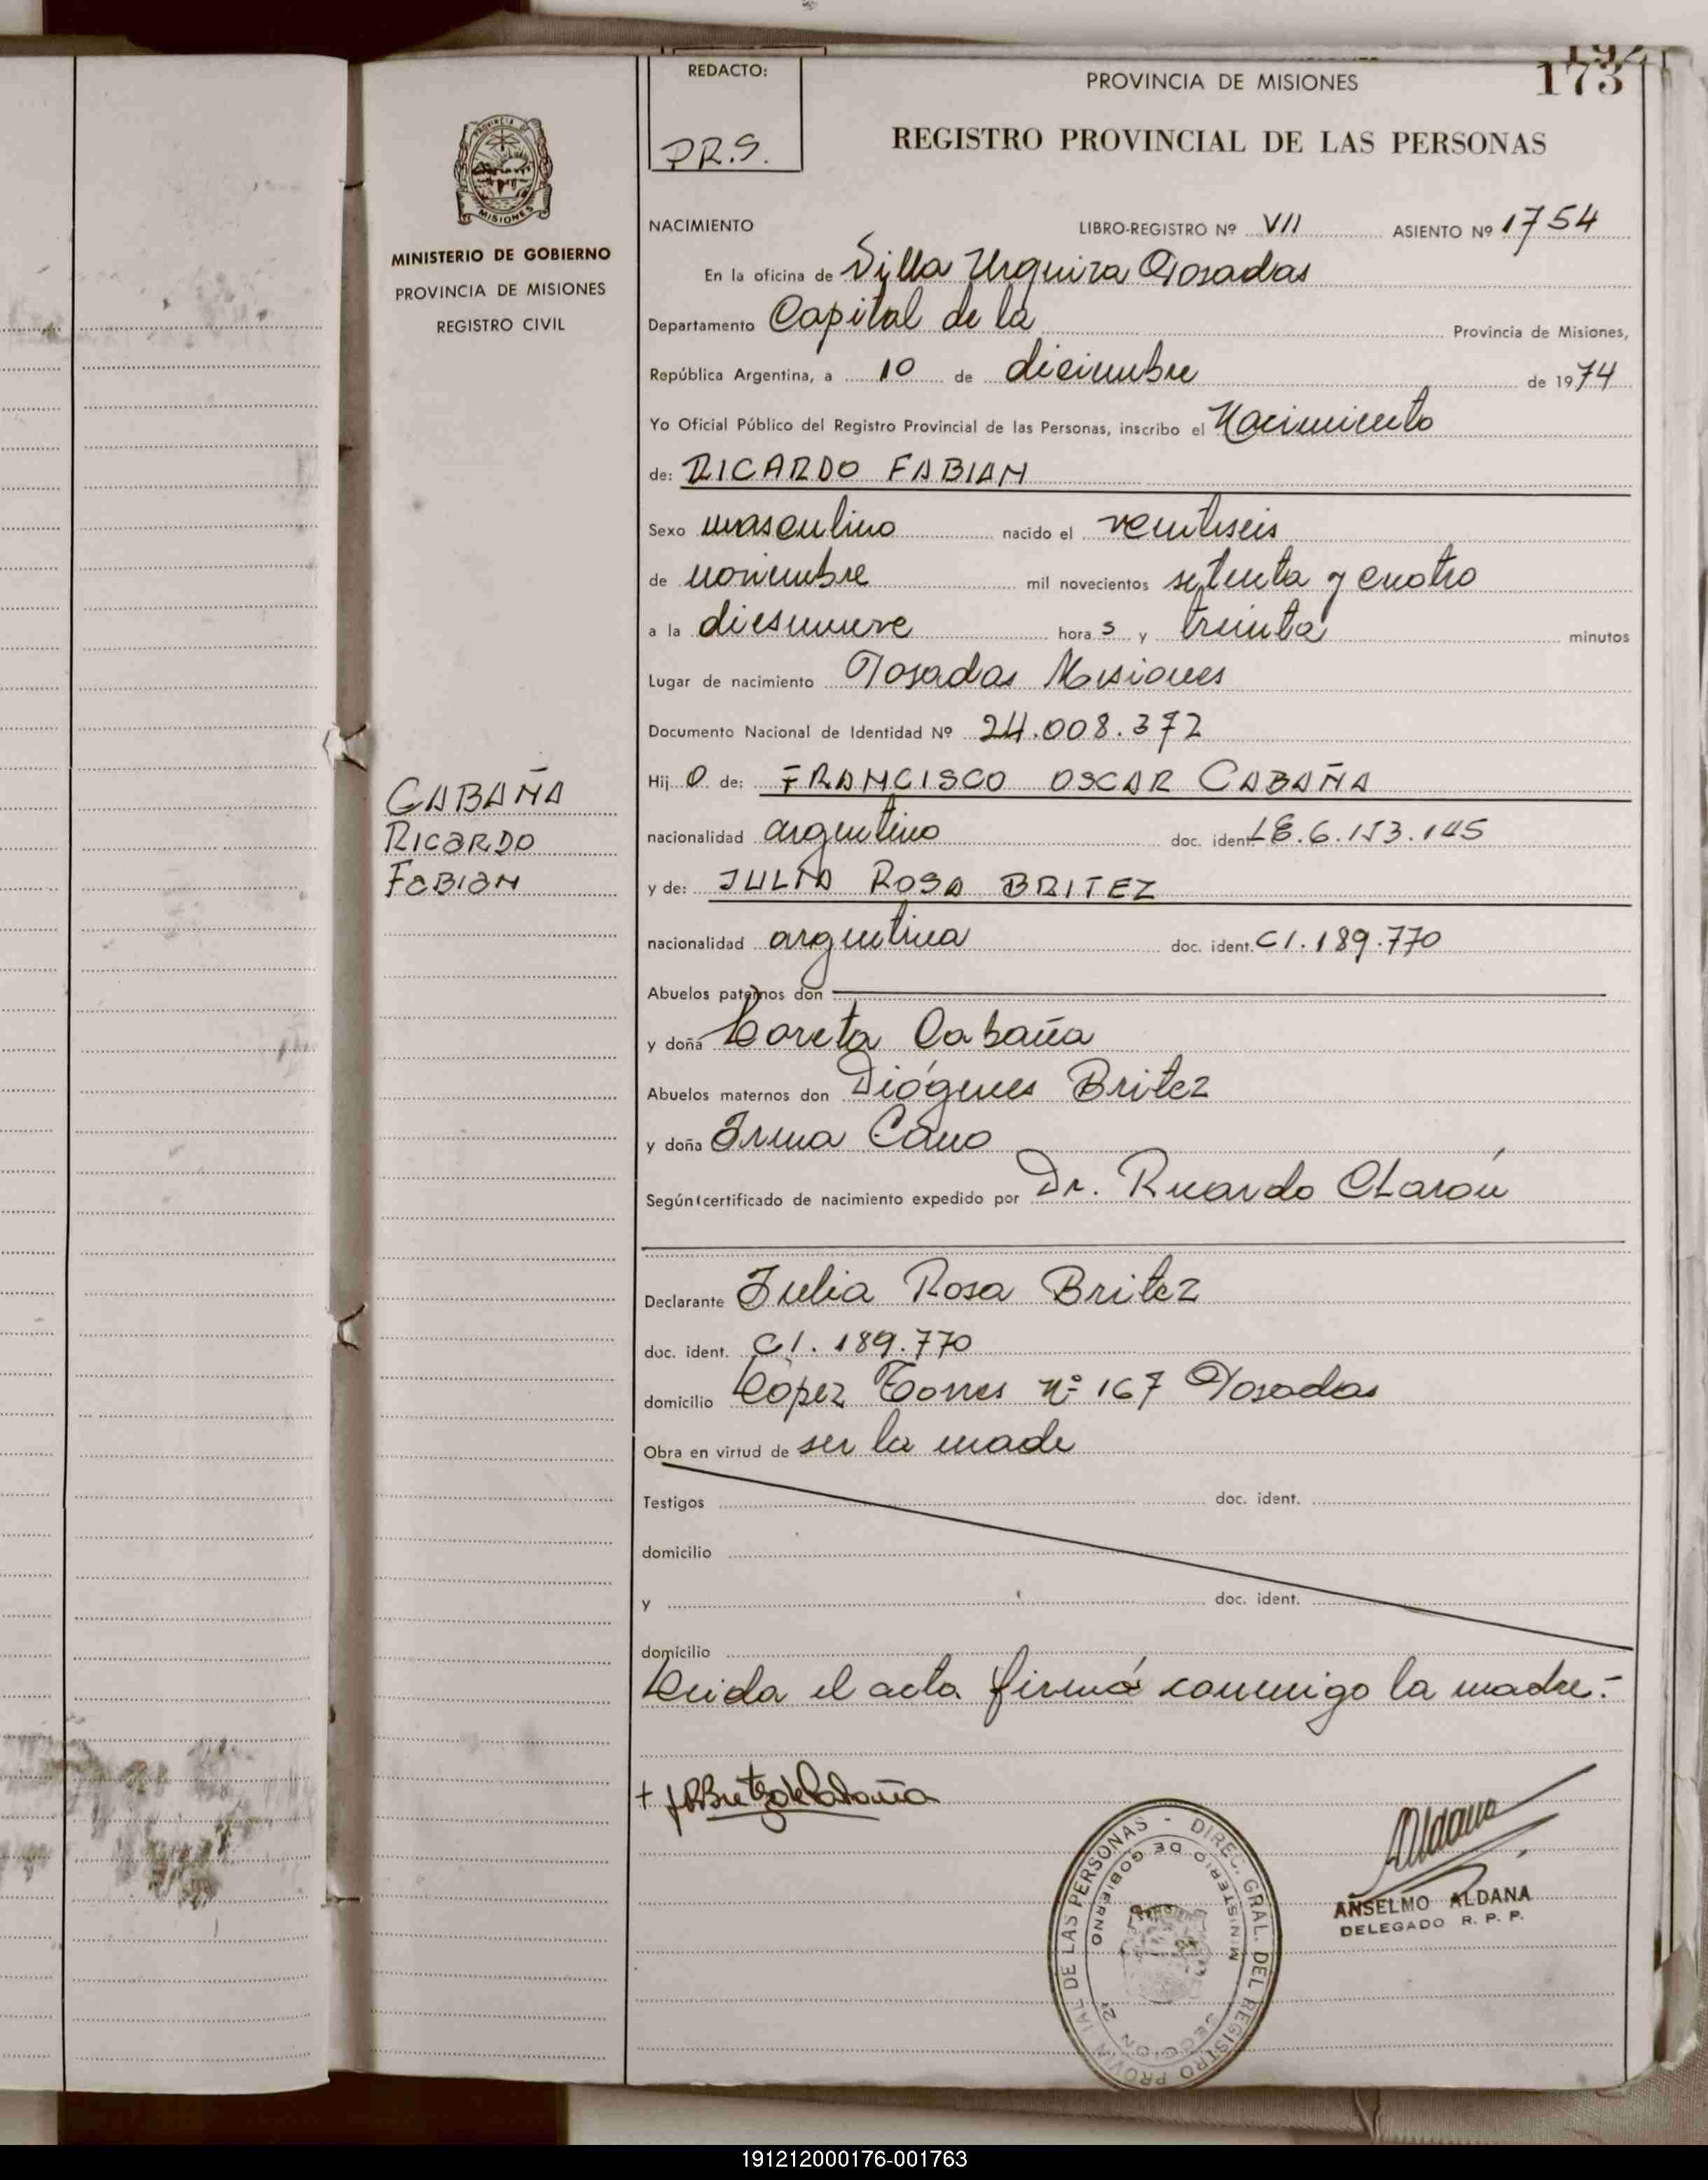 192
173
REDACTO:
P.R.S.
PROVINCIA DE MISIONES
REGISTRO PROVINCIAL DE LAS PERSONAS
PROVINCIA DE
MISIONES
MINISTERIO DE GOBIERNO
PROVINCIA DE MISIONES
REGISTRO CIVIL
CABAÑA
RICARDO
FABIAN
NACIMIENTO LIBRO-REGISTRO Nº VII ASIENTO Nº 1754
En la oficina de Villa Urquiza Posadas
Departamento Capital de la Provincia de Misiones,
República Argentina, a 10 de diciembre de 1974
Yo Oficial Público del Registro Provincial de las Personas, inscribo el Nacimiento
de: RICARDO FABIAN
Sexo masculino nacido el ventiseis
de noviembre mil novecientos setenta y cuatro
a la diesnueve hora s y treinta minutos
Lugar de nacimiento Posadas Misiones
Documento Nacional de Identidad Nº 24.008.372
Hij o de: FRANCISCO OSCAR CABAÑA
nacionalidad argentino doc. ident. LE.6.153.145
y de: JULIA ROSA BRITEZ
nacionalidad argentina doc. ident. CI.189.770
Abuelos paternos don
y doña Loreta Cabaña
Abuelos maternos don Diógenes Britez
y doña Irma Cano
Según certificado de nacimiento expedido por Dr. Ricardo
Declarante Julia Rosa Britez
doc. ident. CI.189.770
domicilio López Torres nº 167 Posadas
Obra en virtud de ser la made
Testigos doc. ident.
domicilio
y doc. ident.
domicilio
Leida el acta firmá conmigo la madre.-
+ JRBritez de Cabaña
DIREC. GRAL. DEL REGISTRO PROVINCIAL DE LAS PERSONAS -
MINISTERIO DE GOBIERNO
SECCION 2ª
Aldana
ANSELMO ALDANA
DELEGADO R. P. P.
191212000176-001763